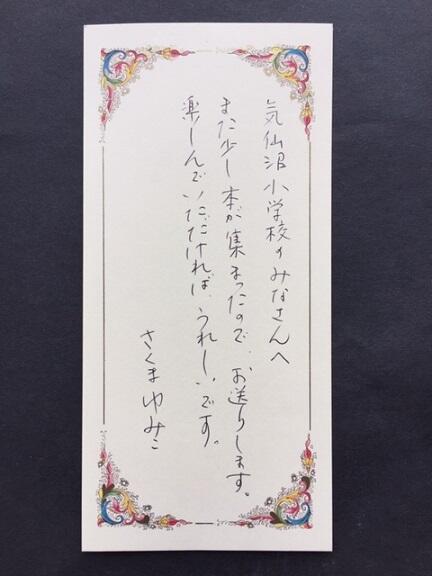 気仙沼小学校のみなさんへ
また少し本が集まったので、お送りします。
楽しんでいただければ、うれしいです。
さくまゆみこ